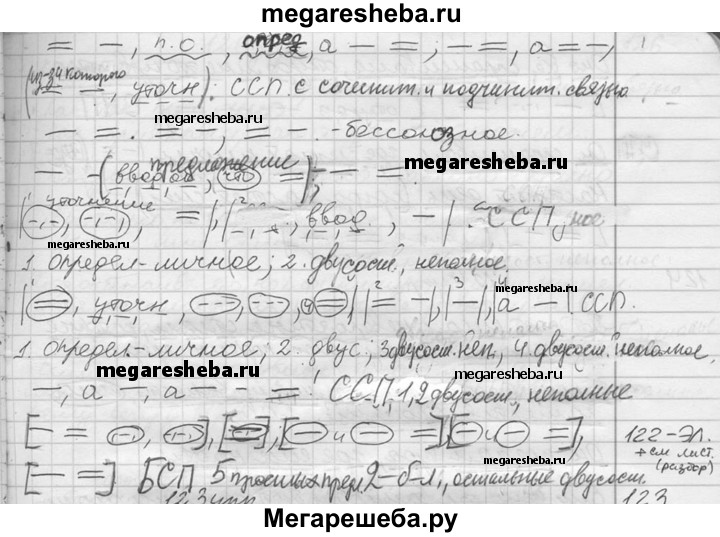 megaresheba.ru
= –, п.о., опред, а – =; – =, а = –,
(из-за которого = –, уточн): ССП с сочинит. и подчинит. связью
megaresheba.ru
– =. = –, = –. - бессоюзное.
предложение megaresheba.ru
– – (вводн, –, что =), – =.
уточнение
–, –, =, 2, ввод., – . ССП
megaresheba.ru
1. Определ-личное; 2. двусост., неполное.
megaresheba.ru
=, уточн, –, –, –, =, 2 = –, 3 –, 4 а – . ССП.
1. Определ.-личное; 2. двус.; 3 двусост. неп., 4. двусост. неполное.
megaresheba.ru megaresheba.ru
–, а –, а – – = ! ССП, 1,2 двусост., неполные
[– = –, –], [=], [– и – =] [– и – =], 122-эл.
megaresheba.ru + см. лист. (разбор)
[– =] БСП 5 простых пред. 2-б-л., остальные двусост.
megaresheba.ru
123
Мегарешеба.ру